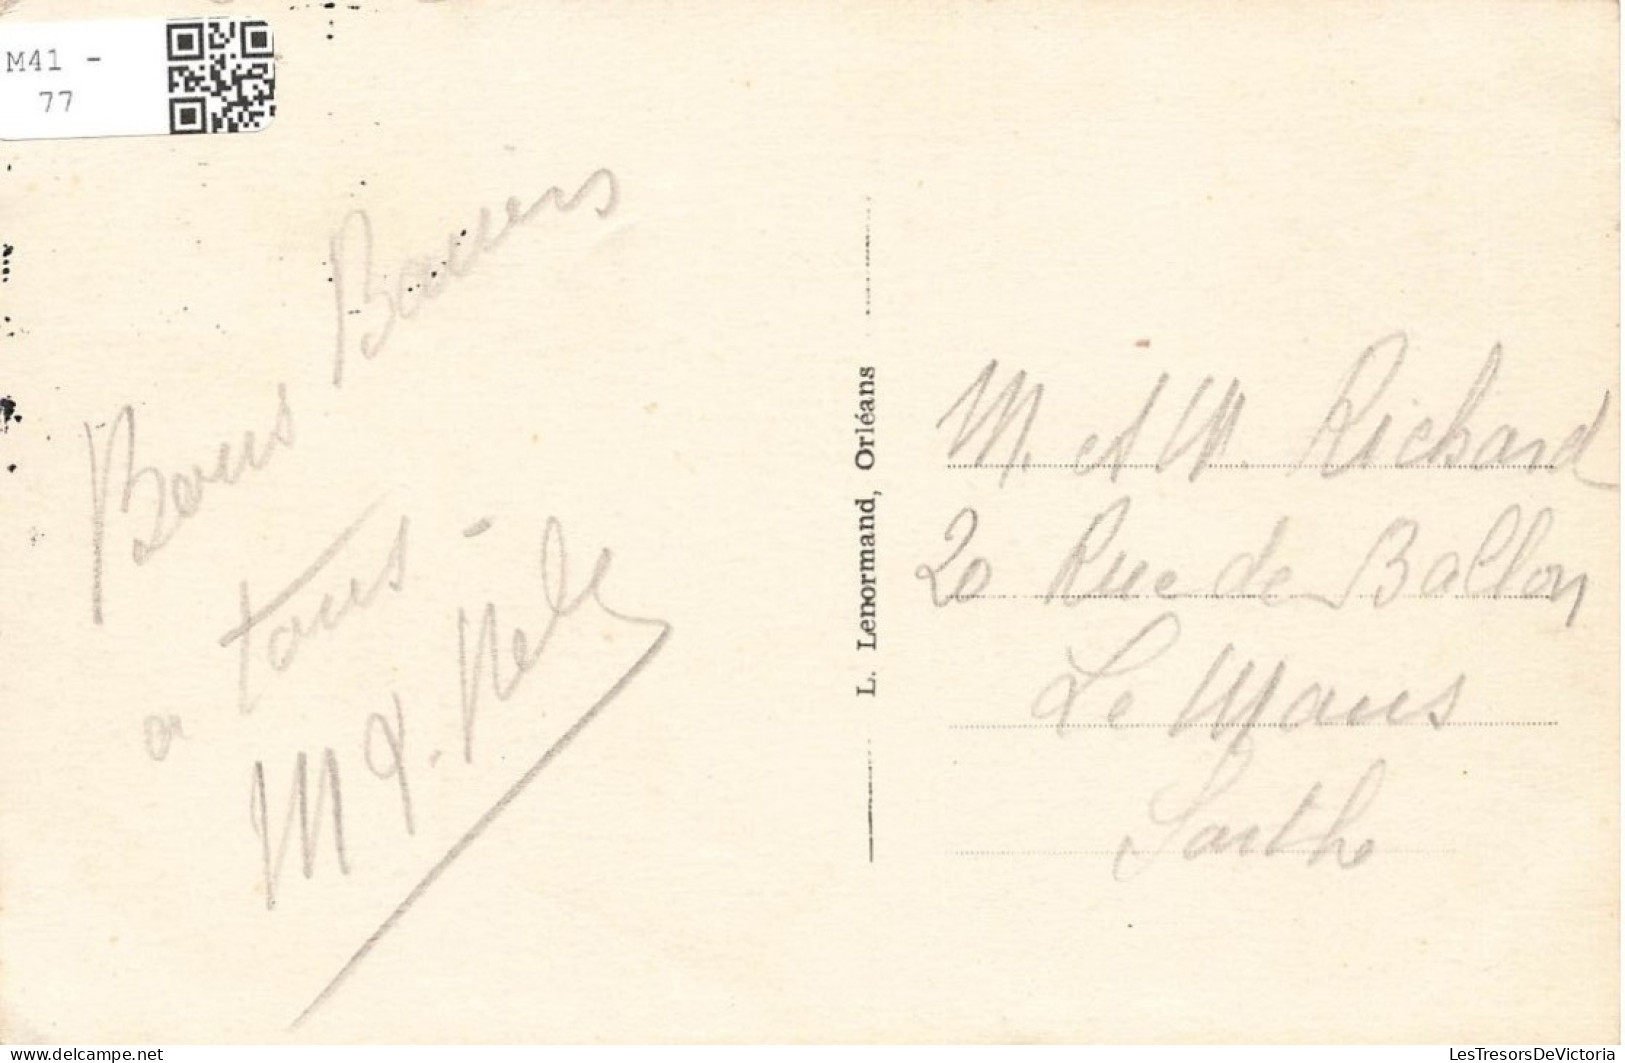 M41 -
77
Bons Baisers
a tous
L. Lenormand, Orléans
M. et M. Richard
20 Rue de Ballon
Le Mans
Sarthe
www.delcampe.net
LesTresorsDeVictoria